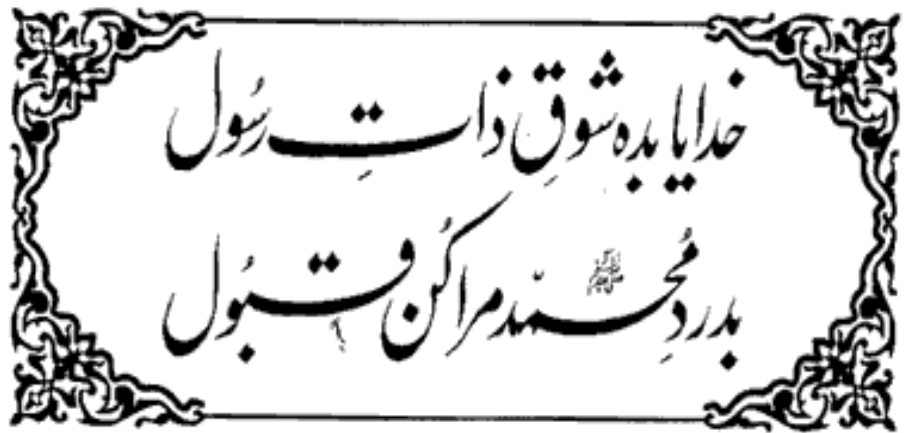 خدایا بده شوقِ ذاتِ رسُول
بدردِ مُحمّد ﷺ مرا کُن قبُول